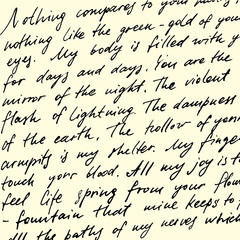 Nothing compares to your hands,
nothing like the green-gold of your
eyes. My body is filled with y
for days and days. You are the
mirror of the night. The violent
flash of lightning. The dampness
of the earth. The hollow of your
armpits is my shelter. My finge
touch your blood. All my joy is t
feel life spring from your flow
-fountain that mine keeps to
all the paths of my nerves which